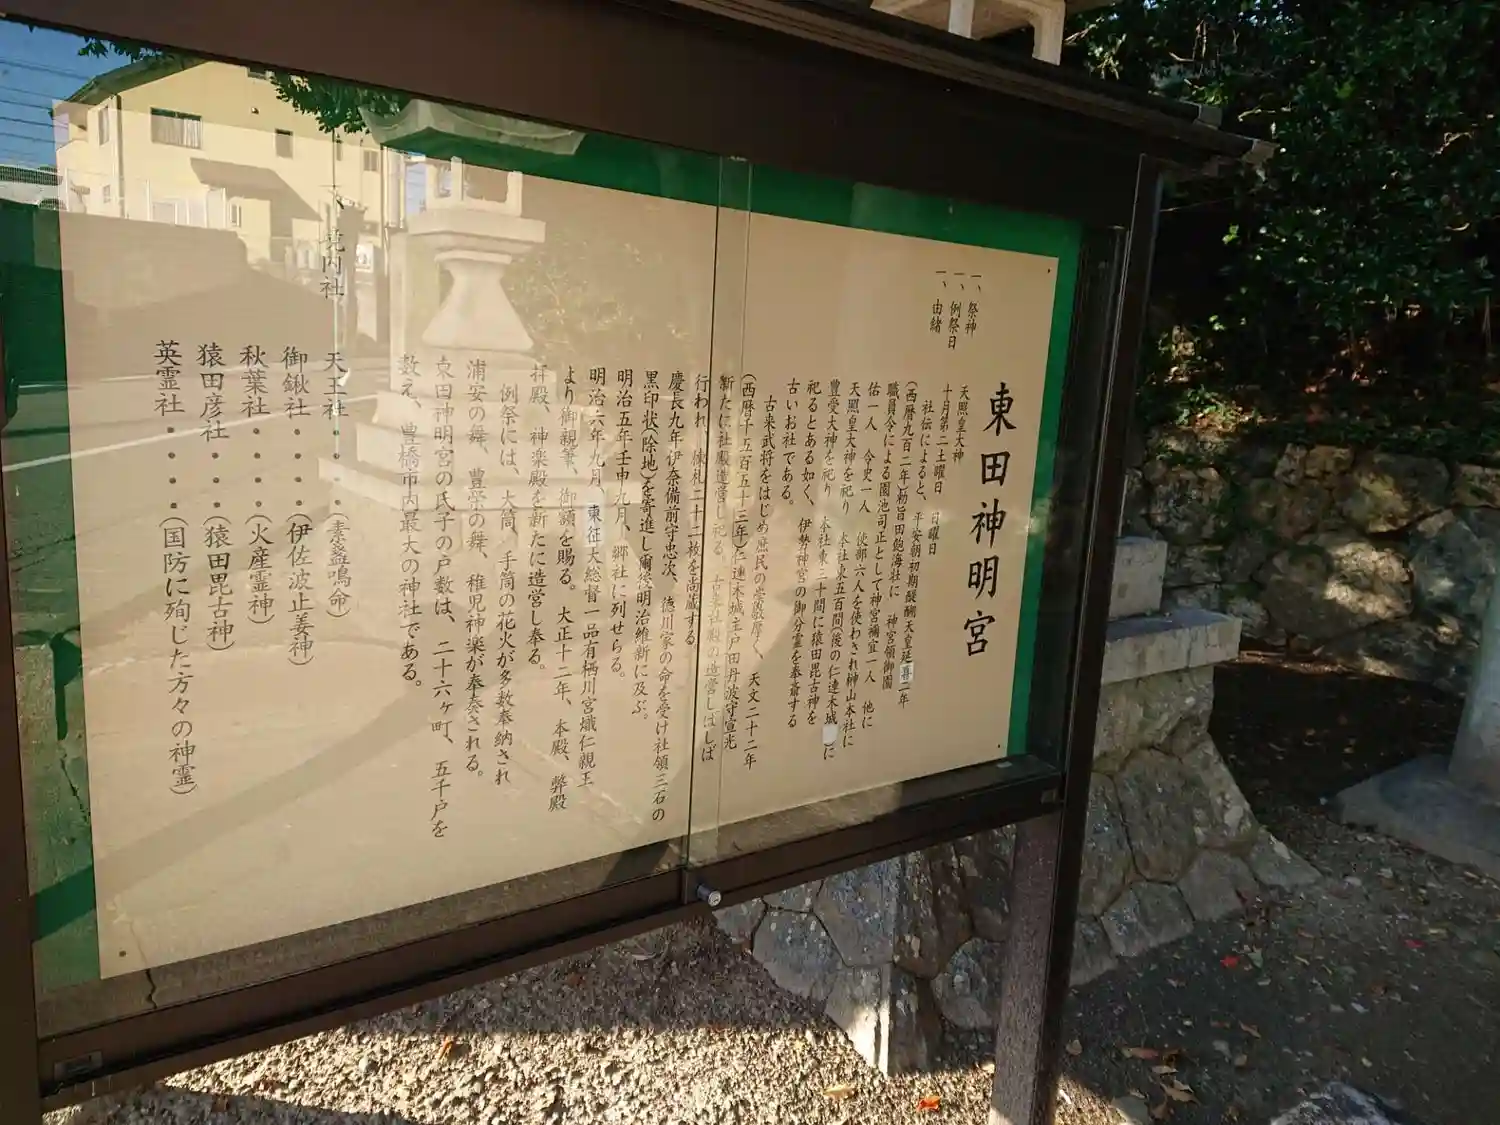 東田神明宮
一、祭神
天照皇大神
一、例祭日
十月第二土曜日 日曜日
一、由緒
社伝によると、平安朝初期醍醐天皇延喜二年
(西暦九百二年)勅旨田飽海社に 神宮領御園
職員令による園池司正として神宮禰宜一人 他に
佑一人 令史一人 使部六人を使わされ榊山本社に
天照皇大神を祀り 本社東五百間後の仁連木城に
豊受大神を祀り 本社東三十間に猿田毘古神を
祀るとある如く、 伊勢神宮の御分霊を奉斎する
古いお社である。
古来武将をはじめ庶民の崇敬厚く、 天文二十二年
(西暦千五百五十三年)仁連木城主戸田丹波守宣光
新たに社殿造営し祀る。古来社殿の造営しばしば
行われ、棟札二十二枚を尚蔵する。
慶長九年伊奈備前守忠次、徳川家の命を受け社領三石の
黒印状(除地)を寄進し爾後明治維新に及ぶ。
明治五年壬申九月、郷社に列せらる。
明治六年九月、東征大総督一品有栖川宮熾仁親王
より御親筆、御額を賜る。 大正十二年、本殿、弊殿
拝殿、神楽殿を新たに造営し奉る。
例祭には、大筒、手筒の花火が多数奉納され
浦安の舞、豊栄の舞、稚児神楽が奉奏される。
東田神明宮の氏子の戸数は、二十六ヶ町、五千戸を
数え、豊橋市内最大の神社である。
一、境内社
天王社・・・・(素盞鳴命)
御鍬社・・・・(伊佐波止美神)
秋葉社・・・・(火産霊神)
猿田彦社・・・(猿田毘古神)
英霊社・・・・(国防に殉じた方々の神霊)